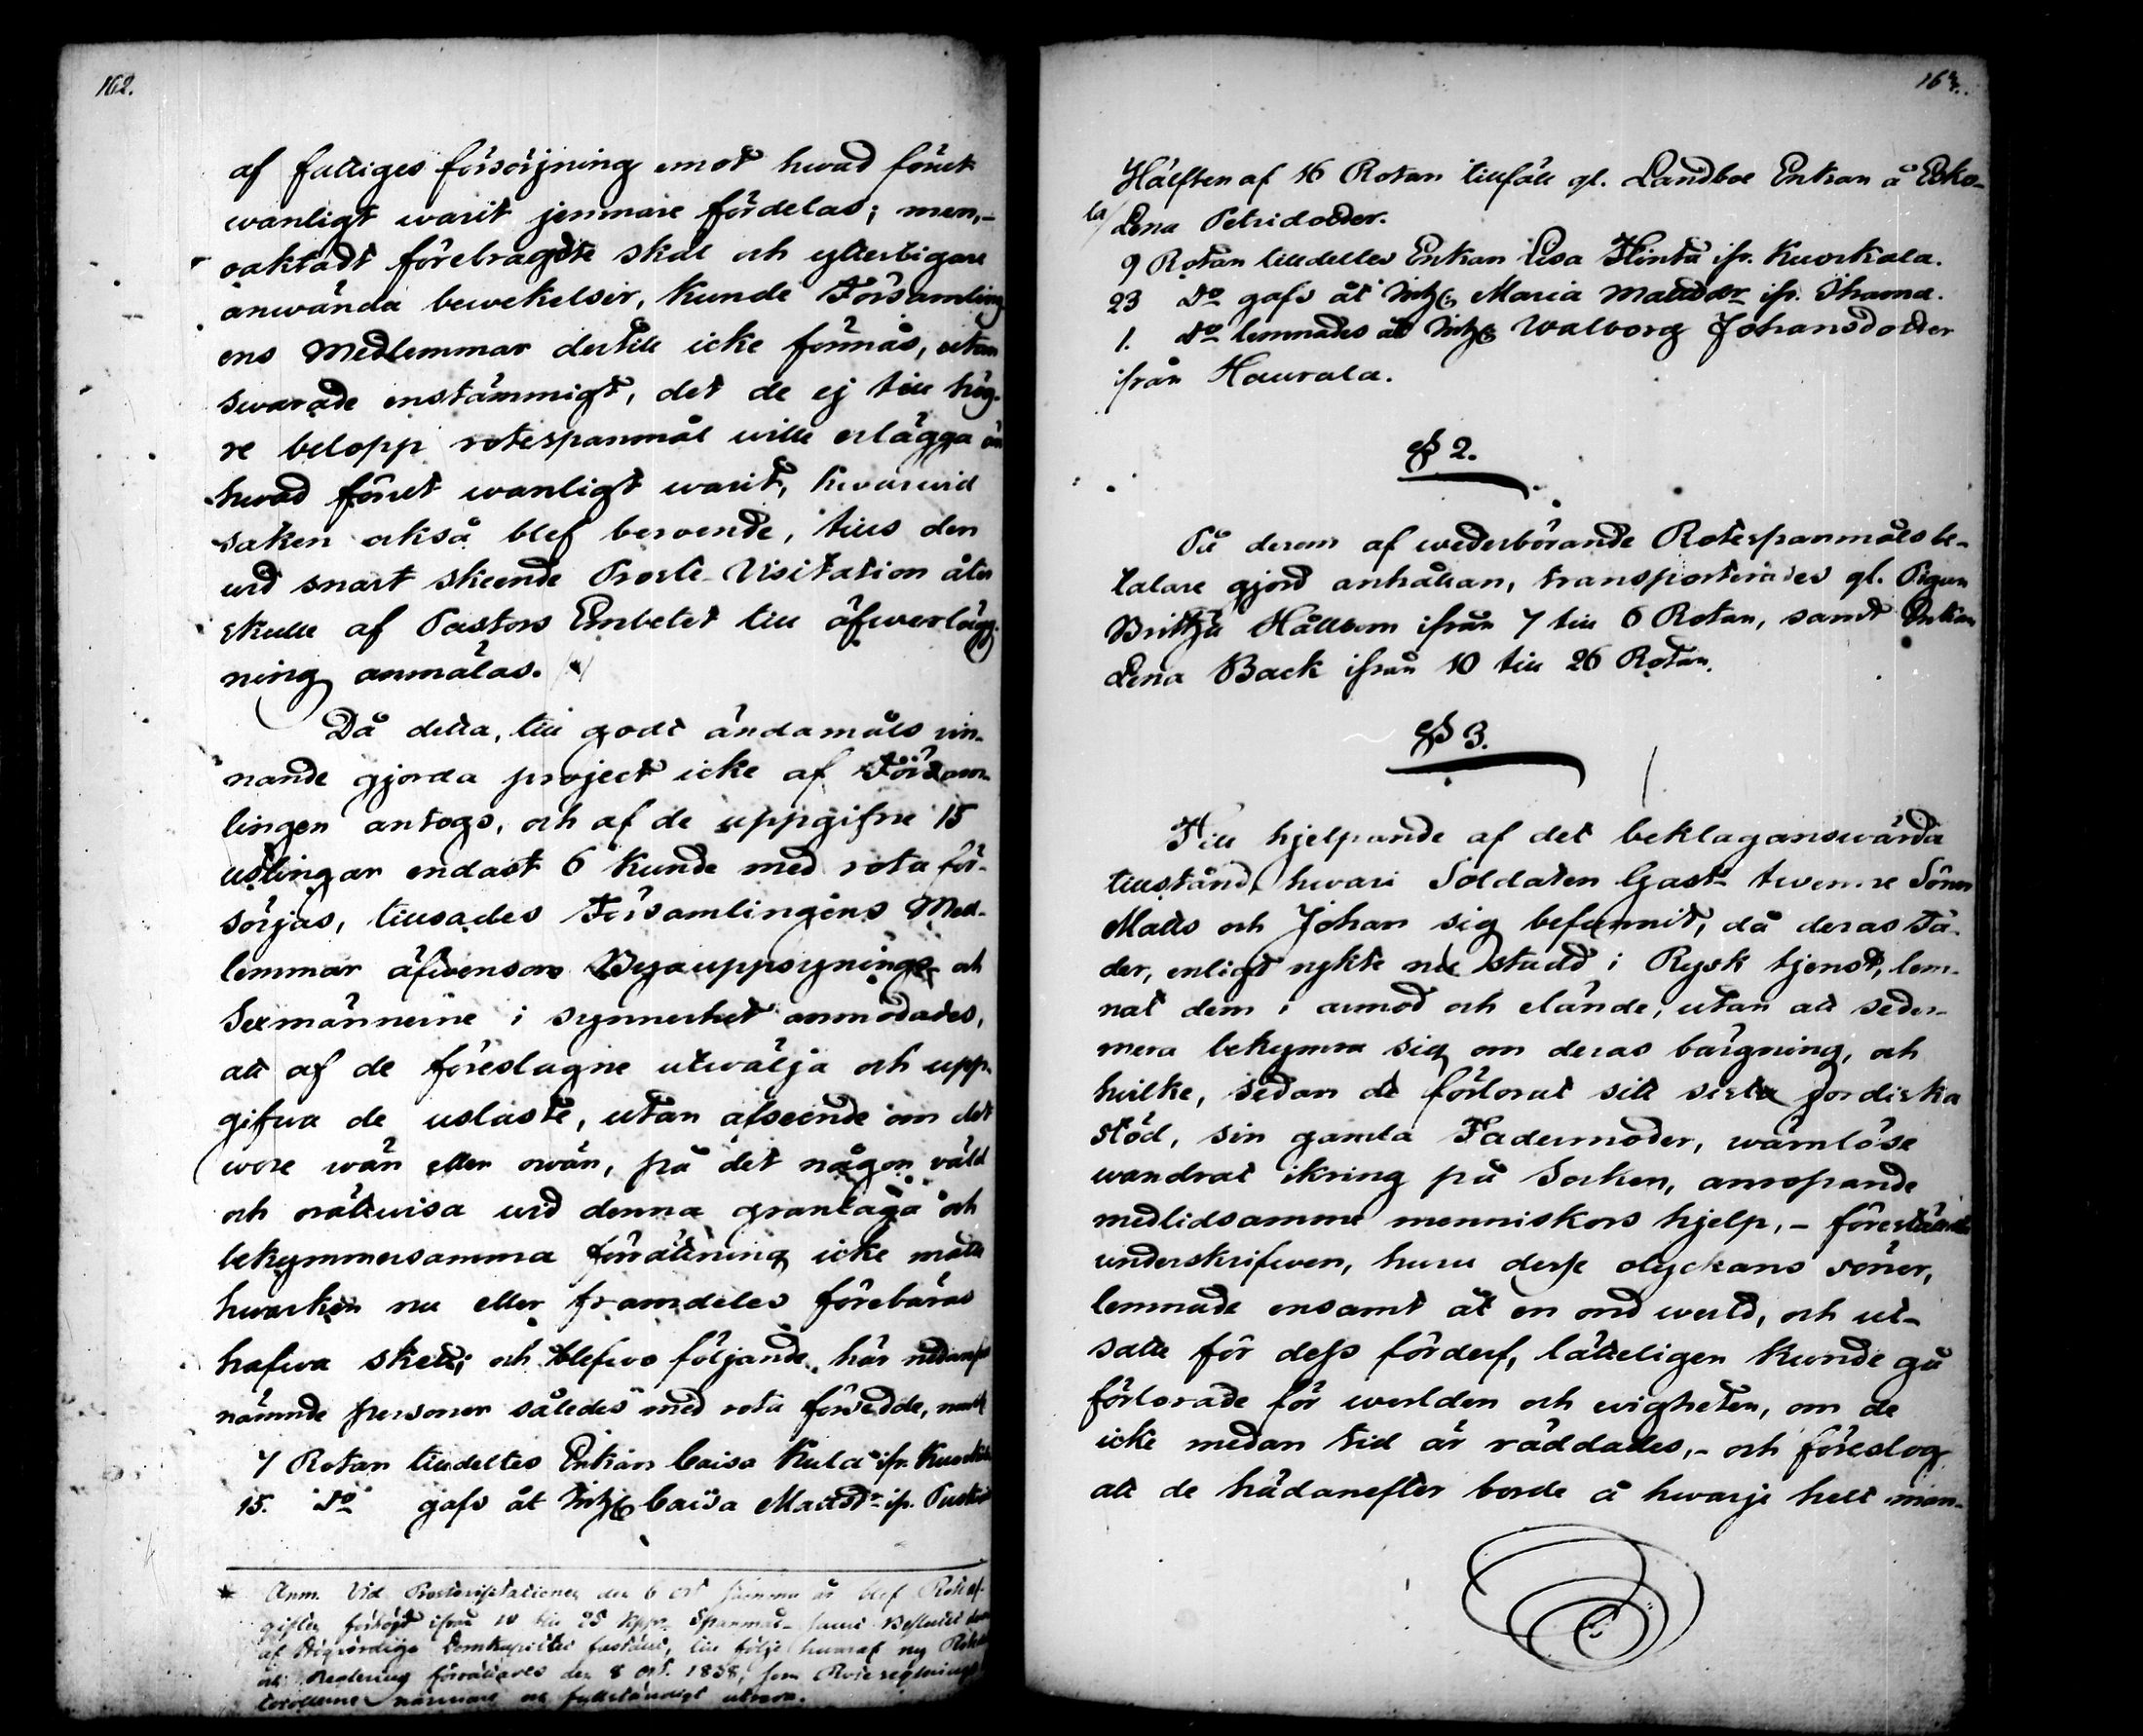 162.
af fattiges försörjning emot hwad förut
wanligt warit jemnare fördelas; men,-
oaktadt förebragdte skäl och ytterligare
använda bewekelser, kunde Församling
ens Medlemmar dertill icke förmås, utan
swarade enstämmigt, det de ej till hög-
re belopp rotespanmål wille erlägga än
hwad förut wanligt warit, hwarwid
saken också blef beroende, tills den
wid snart skeende Prosts-Visitation åter
skulle af Pastors Embetet till öfwerlägg-
ning anmälas.
Då detta, till godt ändamåls vin-
nande gjorda project icke af Försam-
lingen antogs, och af de uppgifne 15
uslingar endast 6 kunde med rota för-
sörjas, tillsades Församlingens Med-
lemmar äfwensom Byauppsynings och
Sexmännerne i synnerhet anmodades,
att af de föreslagne utwälja och upp-
gifwa de uslaste, utan afseende om det
wore wän eller owän, på det någon våld
och orättwisa wid denna grantaga och
bekymmersamma förrättning icke måtte
hwarken nu eller framdeles förebäras
hafwa skett; och blefwo följande, här nedanföre
nämnde personer således med rota försedde, neml.
7 Rotan tilldeltes Enkan Caisa Kula ifr.
15. Do gafs åt Inhs Caisa Mattsdr ifr.
* Anm. Vid Prostvisitationen den 6 Oct samma år blef Rotaf-
giften förhögd ifrån 10 till 25 kppr Spanmål samt Beslutet
af Högvördiga Domkapitlet fastäldt, till följe hwaraf ny Rote
Reglering förrättades den 8 Oct. 1838, som Roteregleringe
närmare och fullständigt utvisa.
163.
Hälften af 16 Rotan tillföll gl. Landboe Enkan å Esko-
la/ Lena Petridotter.
9 Rotan tilldeltes Enkan Lisa Hinta ifr. Kuorkala.
23 Do gafs åt Inhs Maria Mattsdr ifr.
1. Do lemnades åt Inhs Walborg Johansdotter
ifrån Haurala.
§ 2.
På derom af wederbörande Rotespanmåls be-
talare gjord anhållan, transporterades gl. Pigan
Britha Hållbom ifrån 7 till 6 Rotan, samt Enkan
Lena Back ifrån 10 till 26 Rotan.
§ 3.
Till hjelpande af det beklaganswärda
tillstånd, hwari Soldaten Gasts twenne Söner
Matts och Johan sig befunnit, då deras Fa-
der, enligt rykte nu stadd i Rysk tjenst, lem-
nat dem i armod och elände, utan att seder-
mera bekymra sig om deras bärgning, och
hvilke, sedan de förlorat sitt sista jordiska
stöd, sin gamla Fadermoder, wärnlöse
wandrat ikring på Socken, anropande
medlidsamma menniskors hjelp,- föreställde
underskrifwen, huru desse olyckans söner,
lemnade ensamt åt en ond werld, och ut-
satte för dess förderf, lätteligen kunde gå
förlorade för werlden och evigheten, om de
icke medan tid är räddades,- och föreslog
att de hädanefter borde å hwarje helt man-